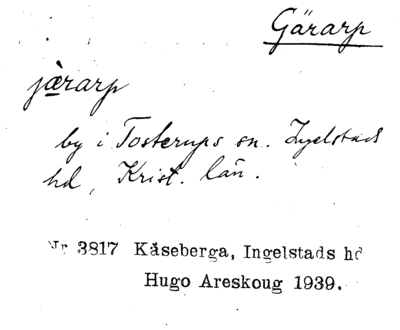 Gärarp
jæ̀rarp
by i Tosterups sn. Ingelstads
hd, Krist. län.
Nr 3817 Kåseberga, Ingelstads hd
Hugo Areskoug 1939.